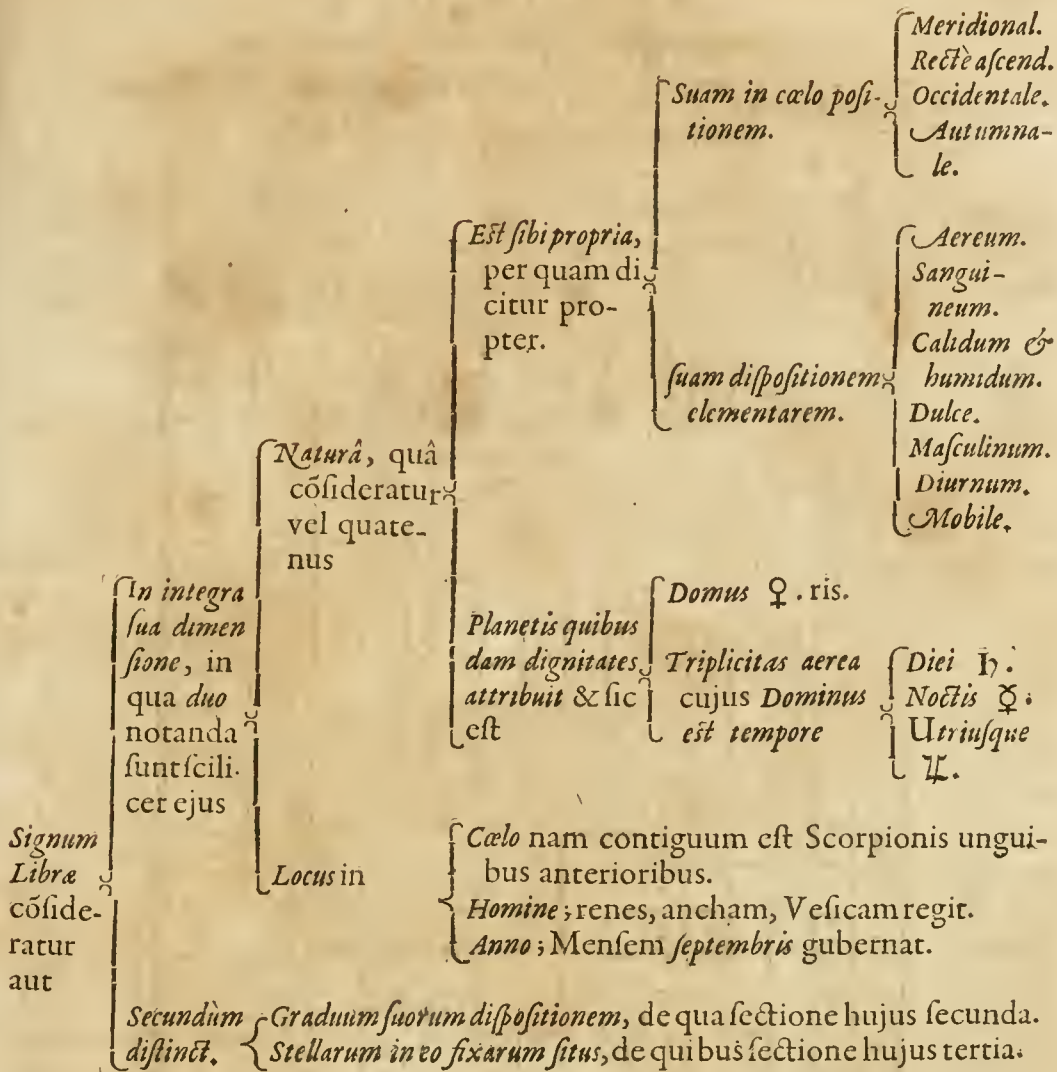 Signum
Libræ
cõside-
ratur
aut
In integra
sua dimen
sione, in
qua duo
notanda
sunt scili.
cet ejus
Naturâ, quâ
cõsideratur
vel quate-
nus
Est sibi propria,
per quam di
citur pro-
pter.
Suam in cœlo posi-
tionem.
Meridional.
Rectè ascend.
Occidentale.
Autumna-
le.
suam dispositionem
elementarem.
Aereum.
Sangui-
neum.
Calidum &
humidum.
Dulce.
Masculinum.
Diurnum.
Mobile.
Planetis quibus
dam dignitates
attribuit & sic
est
Domus ♀. ris.
Triplicitas aerea
cujus Dominus
est tempore
Diei ♄.
Noctis ☿.
Utriusque
♃.
Locus in
Cœlo nam contiguum est Scorpionis ungui-
bus anterioribus.
Homine; renes, ancham, Vesicam regit.
Anno; Mensem septembris gubernat.
Secundùm
distinct.
Graduum suorum dispositionem, de qua sectione hujus secunda.
Stellarum in eo fixarum situs, de quibus sectione hujus tertia.